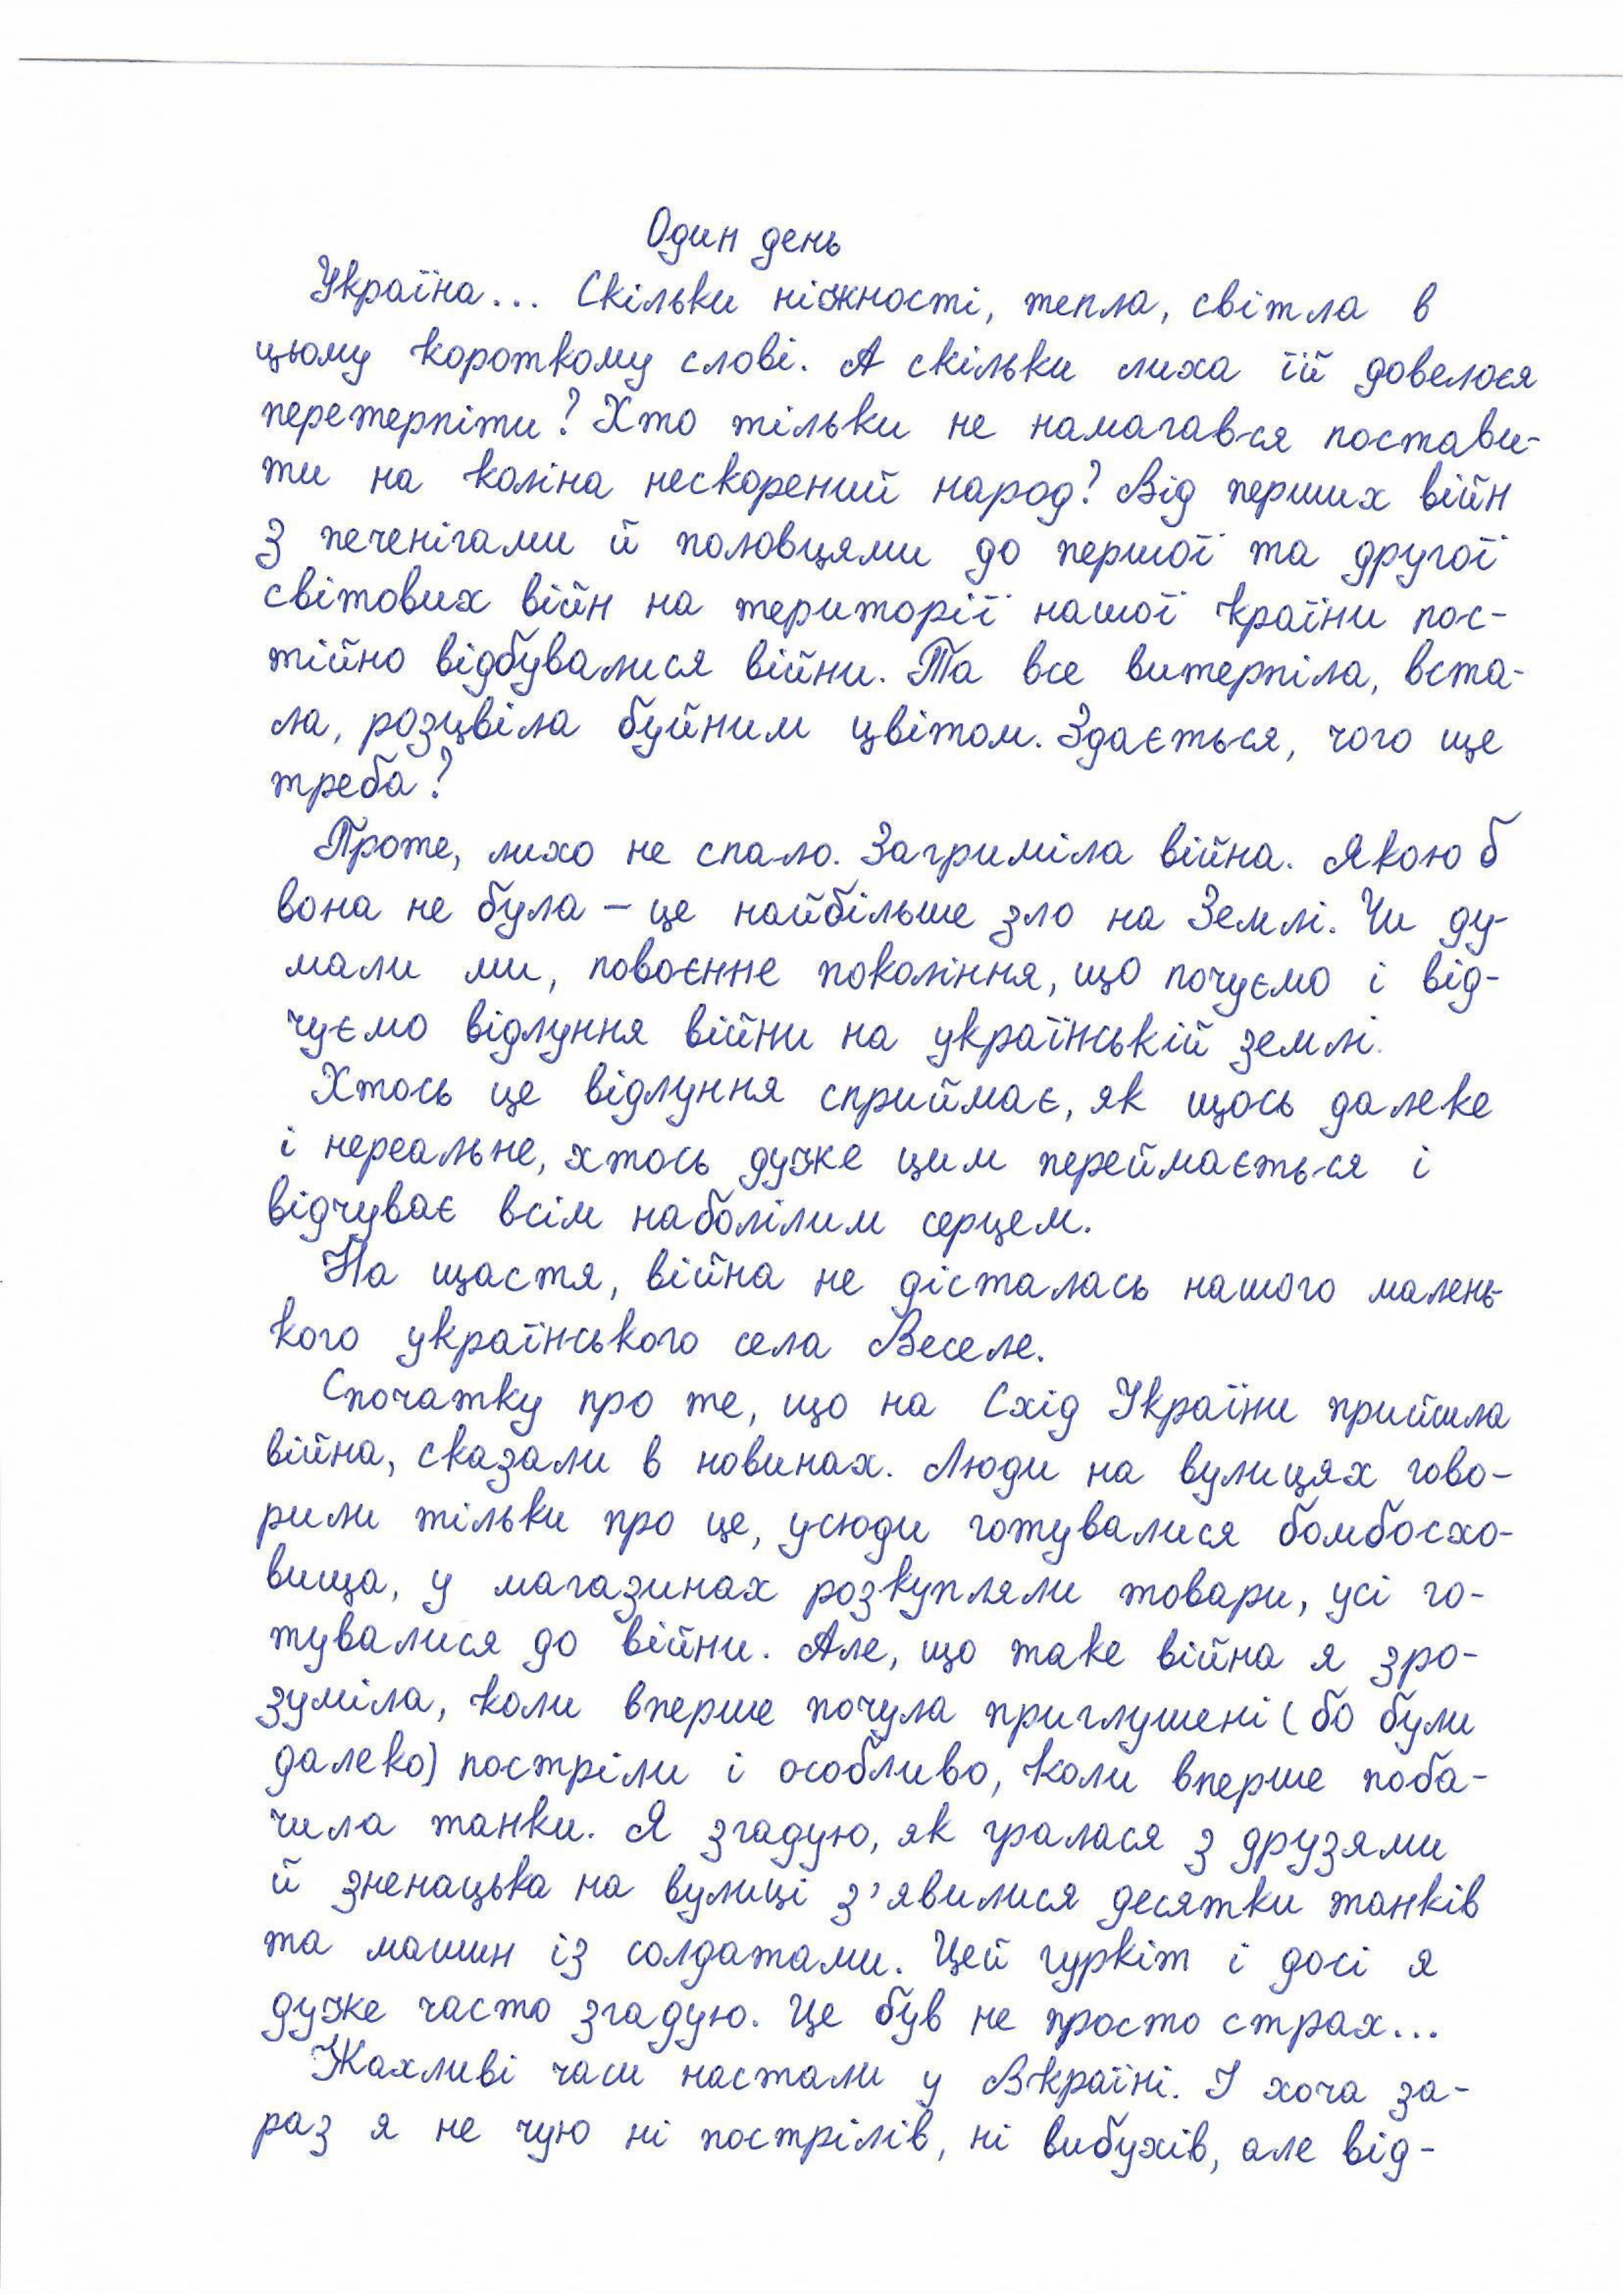 Один день
Україна... Скільки ніжності, тепла, світла в
цьому короткому слові. А скільки лиха їй довелося
перетерпіти? Хто тільки не намагався постави-
ти на коліна нескорений народ? Від перших війн
з печенігами й половцями до першої та другої
світових війн на території нашої країни пос-
тійно відбувалися війни. Та все витерпіла, вста-
ла, розцвіла буйним цвітом. Здається, чого ще
треба?
Проте, лихо не спало. Загриміла війна. Якою б
вона не була – це найбільше зло на Землі. Чи ду-
мали ми, повоєнне покоління, що почуємо і від-
чуємо відлуння війни на українській землі.
Хтось це відлуння сприймає, як щось далеке
і нереальне, хтось дуже цим переймається і
відчуває всім наболілим серцем.
На щастя, війна не дісталась нашого малень-
кого українського села Веселе.
Спочатку про те, що на Схід України прийшла
війна, сказали в новинах. Люди на вулицях гово-
рили тільки про це, усюди готувалися бомбосхо-
вища, у магазинах розкупляли товари, усі го-
тувалися до війни. Але, що таке війна я зро-
зуміла, коли вперше почула приглушені (бо були
далеко) постріли і особливо, коли вперше поба-
чила танки. Я згадую, як гралася з друзями
й зненацька на вулиці з'явилися десятки танків
та машин із солдатами. Цей гуркіт і досі я
дуже часто згадую. Це був не просто страх...
Жахливі часи настали у Вкраїні. І хоча за-
раз я не чую ні пострілів, ні вибухів, але від-